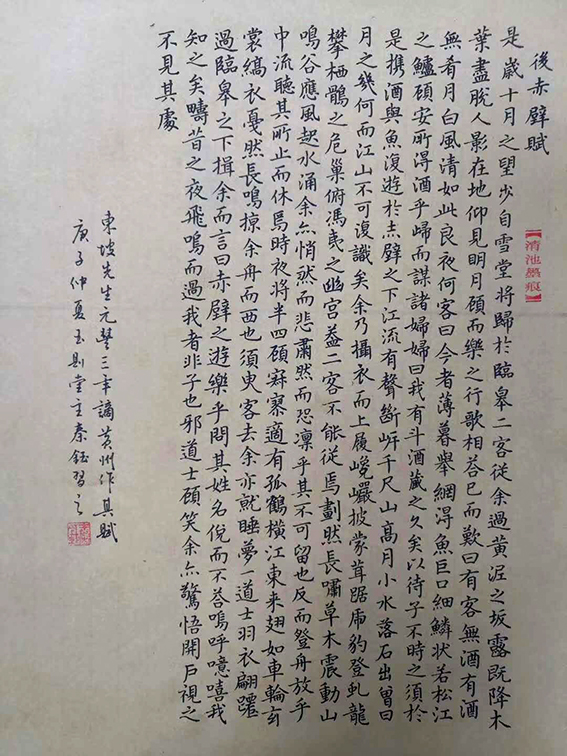 後赤壁賦
【清池墨痕】
是歲十月之望步自雪堂將歸於臨皋二客從余過黃泥之坂露既降木
葉盡脫人影在地仰見明月顧而樂之行歌相荅已而歎曰有客無酒有酒
無肴月白風清如此良夜何客曰今者薄暮舉網得魚巨口細鱗狀若松江
之鱸顧安所得酒乎歸而謀諸婦婦曰我有斗酒藏之久矣以待子不時之須於
是攜酒與魚復遊於赤壁之下江流有聲斷岸千尺山高月小水落石出曾日
月之幾何而江山不可復識矣余乃攝衣而上履巉巖披蒙茸踞虎豹登虬龍
攀栖鶻之危巢俯馮夷之幽宮蓋二客不能從焉劃然長嘯草木震動山
鳴谷應風起水涌余亦悄然而悲肅然而恐凜乎其不可留也反而登舟放乎
中流聽其所止而休焉時夜將半四顧寂寥適有孤鶴橫江東来翅如車輪玄
裳縞衣戛然長鳴掠余舟而西也須臾客去余亦就睡夢一道士羽衣翩躚
過臨皋之下揖余而言曰赤壁之遊樂乎問其姓名俛而不荅嗚呼噫嘻我
知之矣疇昔之夜飛鳴而過我者非子也邪道士顧笑余亦驚悟開戶視之
不見其處
東坡先生元豐三年謫黃州作其賦
庚子仲夏玉則堂主秦鈺習之